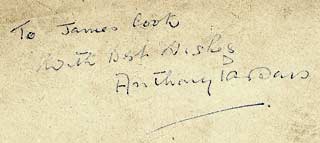 To James Cook
With Best Wishes
Anthony